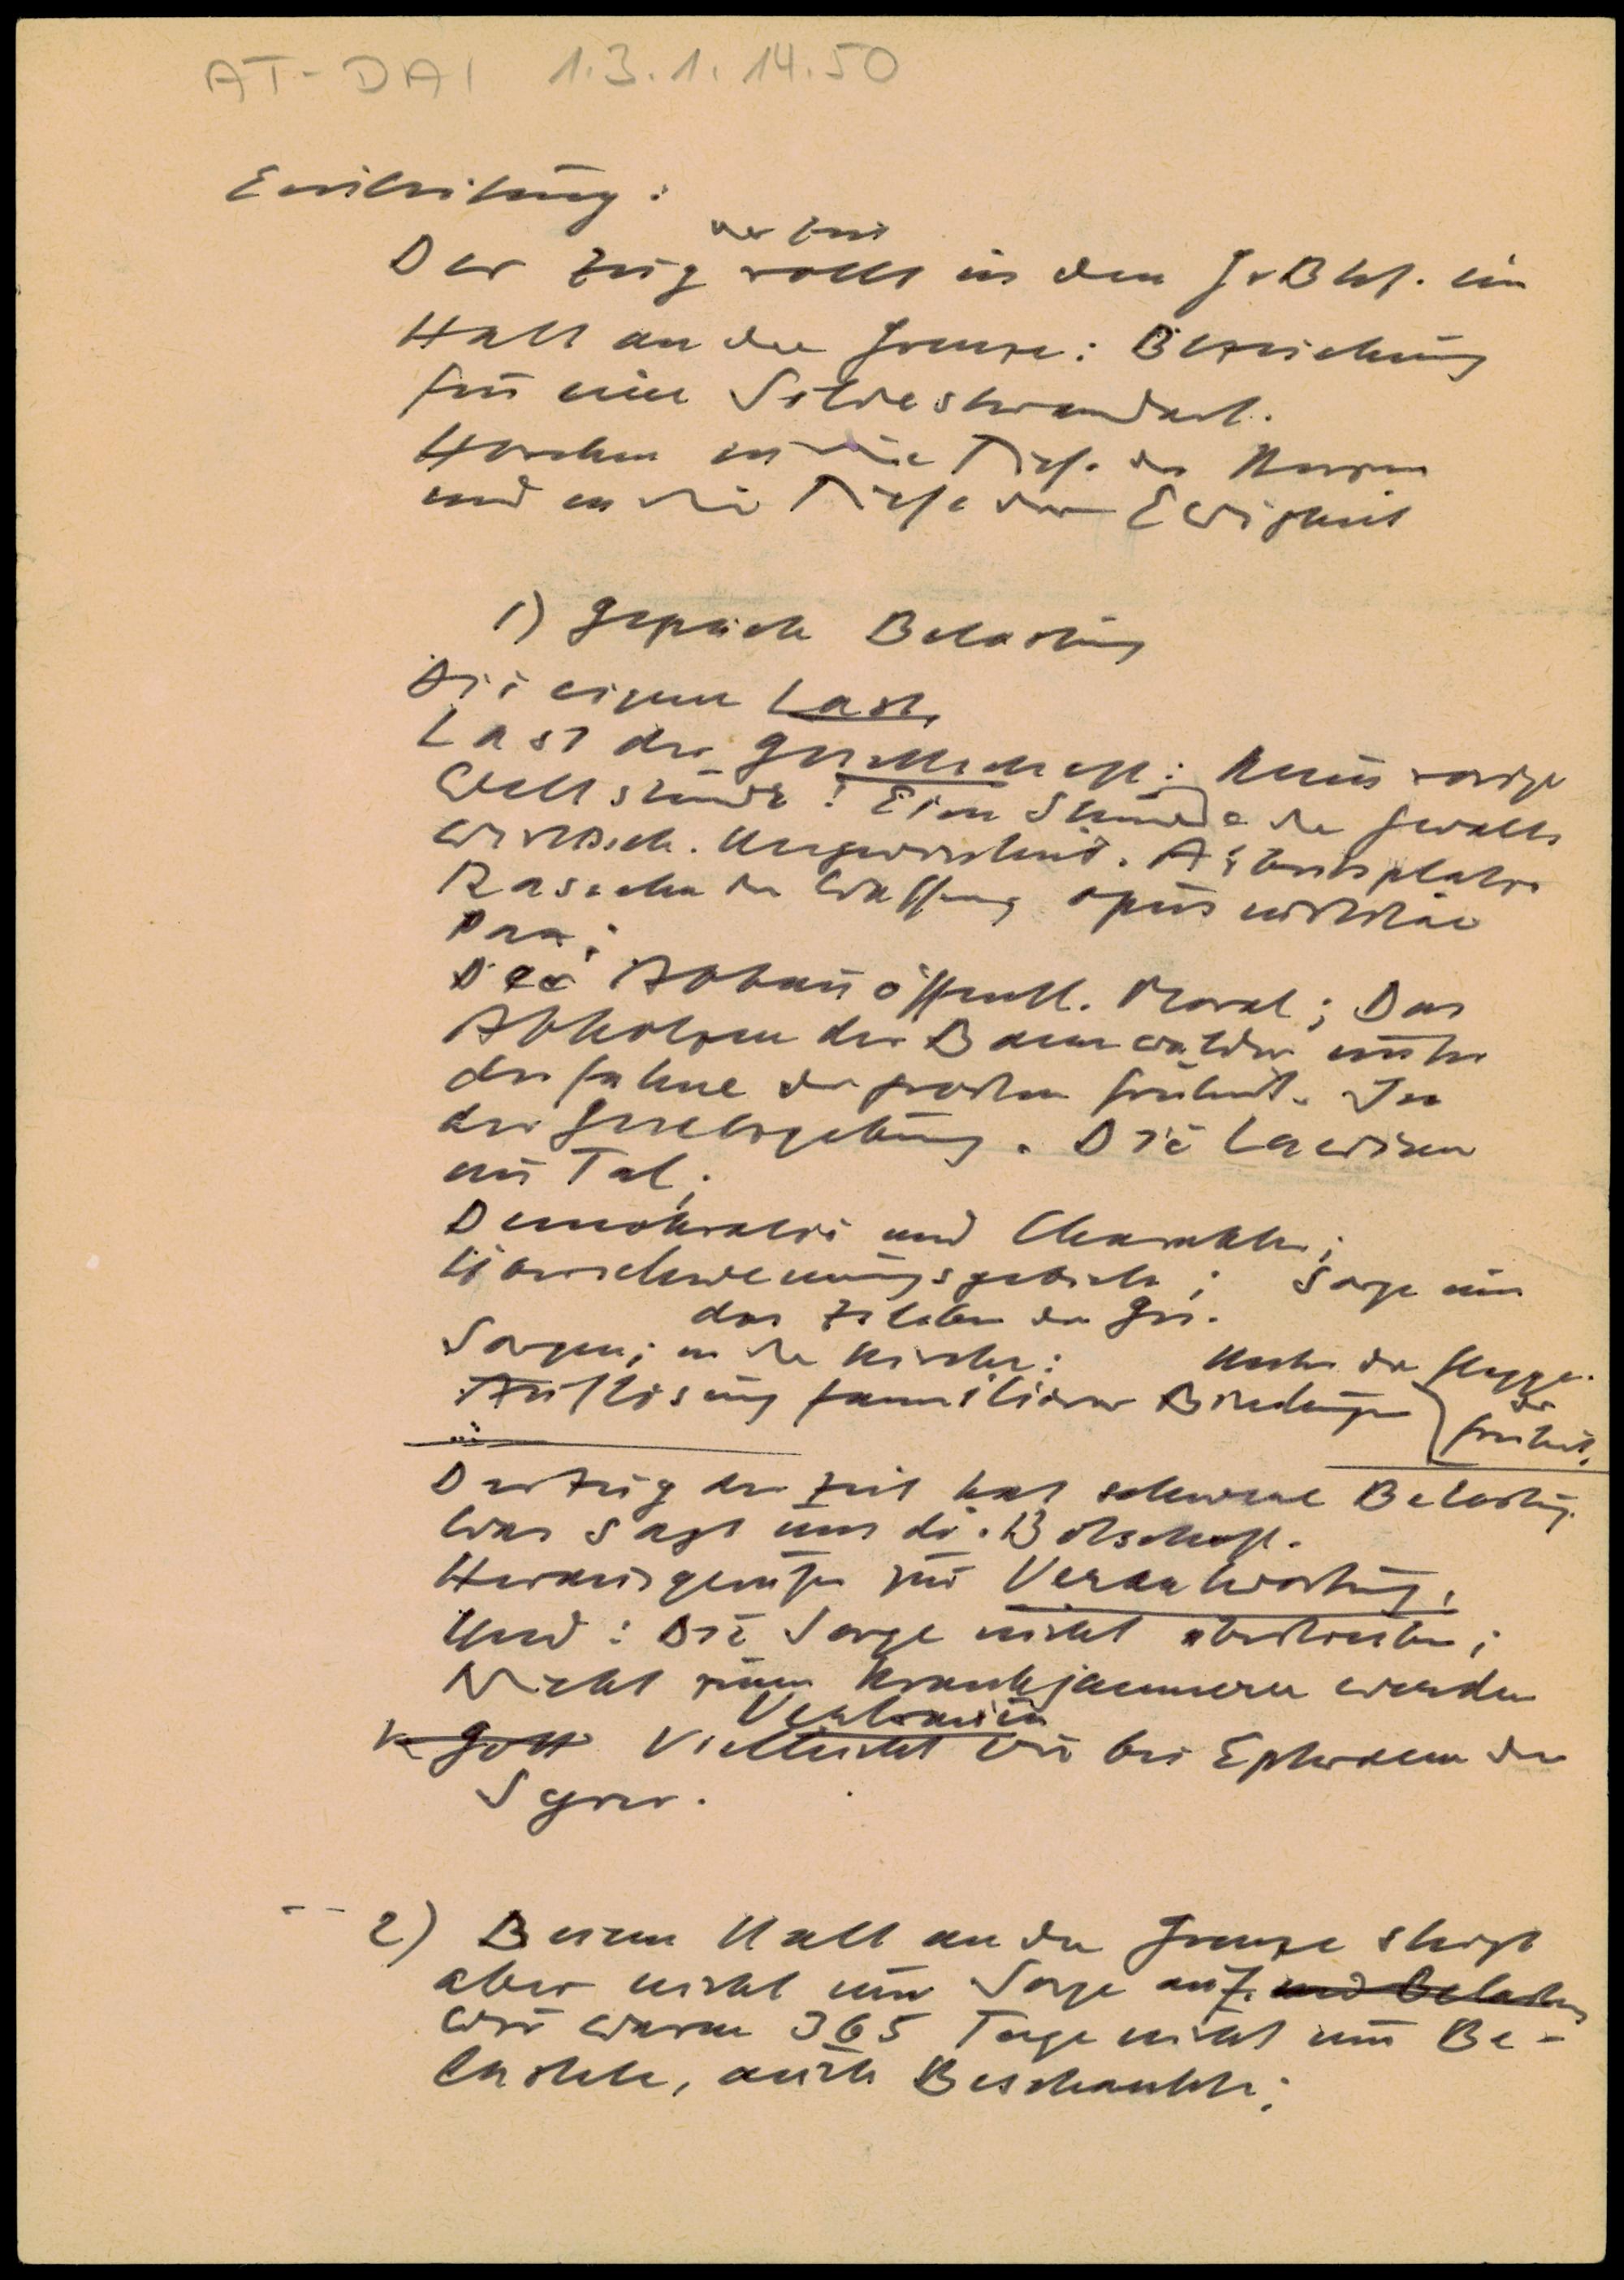 AT-DAI 1.3.1.14.50
Einleitung:
der Zeit
Der Zug rollt in den Gr Bhf. ein
Halt an der Grenze: Bezeichnung
für eine Silvesterandacht.
Horchen in die Tiefe des Herzens
und in die Tiefe der Ewigkeit
1) Gespräch Belastung
Die eigene Last,
Last der Gesellschaft: Keine rosige
Weltstunde! Eine Stunde der Gewalt
wirtsch. Ungewissheit. Arbeitsplätze
Rasseln der Waffen, opus iustitiae
Pax;
Der Abbau öffentl. Moral; Das
Abholzen der Bannwälder unter
der Fahne der großen Freiheit. In
der Gesetzgebung. Die Lawinen
im Tal;
Demokratie und Charakter;
Überschwemmungsgebiete; Sorge um
das Zileben der Ges.
Sorgen; in der Kirche: Unter der Flagge
Auflösung familiärer Bindungen der
Freiheit.
Der Zug der Zeit hat schwere Belastung.
Was sagt uns die Botschaft.
Herausgerufen zur Verantwortung,
Und: Die Sorge nicht übertreiben;
Nicht zum Krankjammerer werden
Vertrauen
Gott Vielleicht wie bei Ephraem der
Syrer.
-- 2) Beim Halt an der Grenze steigt
aber nicht nur Sorge auf. und Belastung
Wir waren 365 Tage nicht nur Be-
lastete, auch Beschenkte;